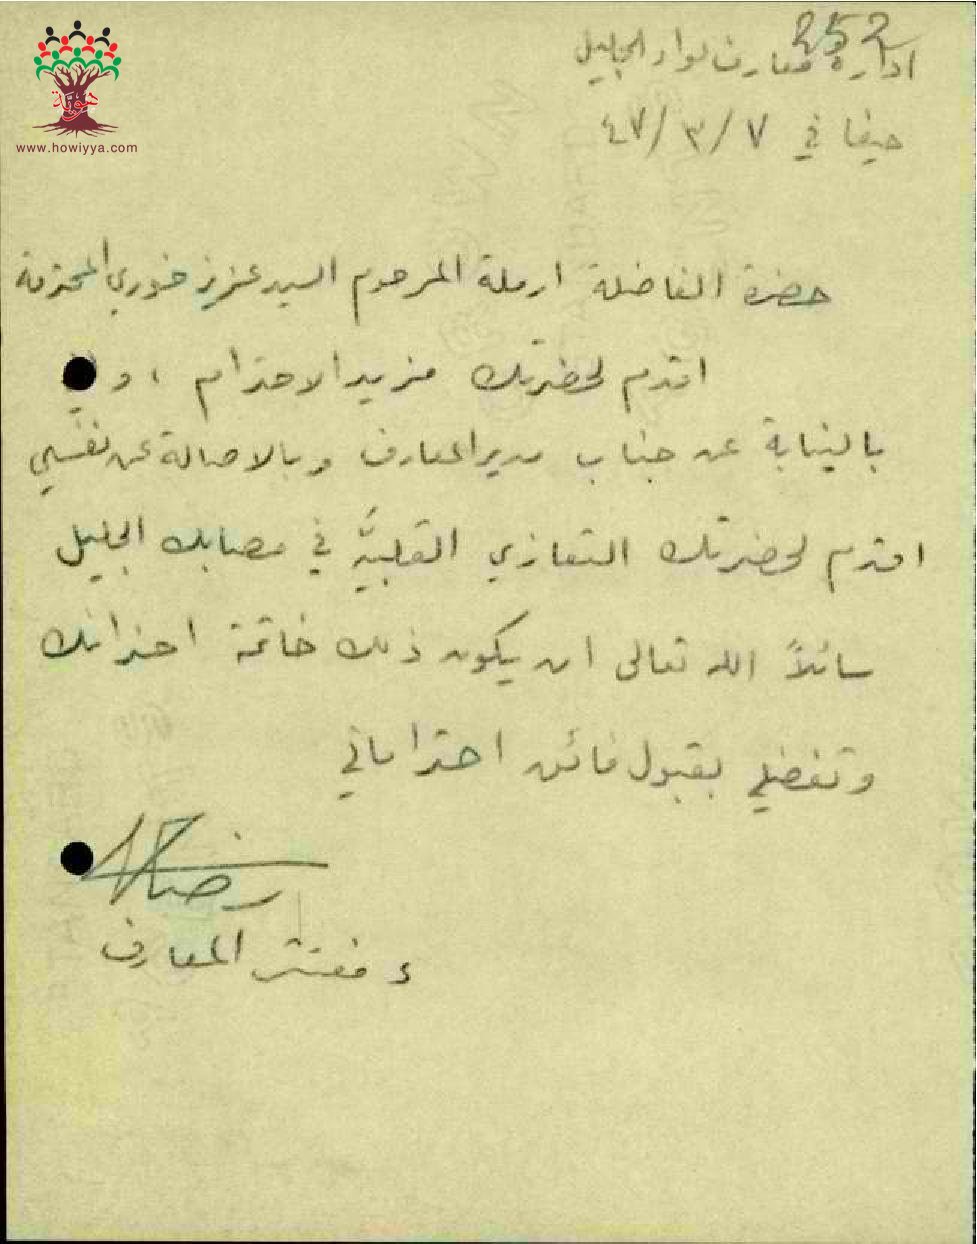 252
ادارة معارف لواء الجليل
حيفا في ٧/٣/٤٧
هوية
www.howiyya.com
حضرة الفاضلة ارملة المرحوم السيد عزيز خوري المحترمة
اقدم لحضرتك مزيد الاحترام ، و
بالنيابة عن جناب مدير المعارف وبالاصالة عن نفسي
اقدم لحضرتك التعازي القلبيَّة في مصابك الجليل
سائلاً الله تعالى ان يكون ذلك خاتمة احزانك
وتفضلي بقبول فائق احتراماتي
مفتش المعارف